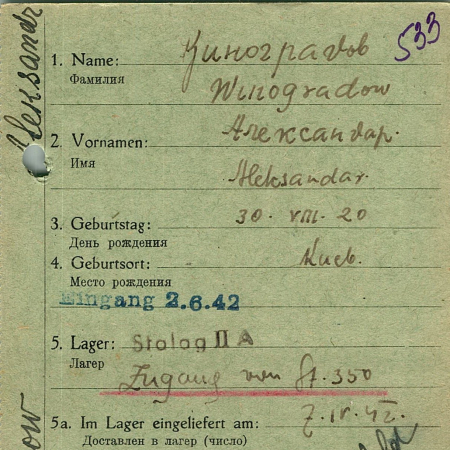 Aleksandr
533
1. Name: Киноградов
Фамилия
Winogradow
2. Vornamen: Александар.
Имя
Aleksandar.
3. Geburtstag: 30. VIII. 20
День рождения
4. Geburtsort: Киев.
Место рождения
Eingang 2.6.42
5. Lager: Stalag II A
Лагер
Zugang von St. 350
5a. Im Lager eingeliefert am: 7. IV. 42.
Доставлен в лагер (число)
ow